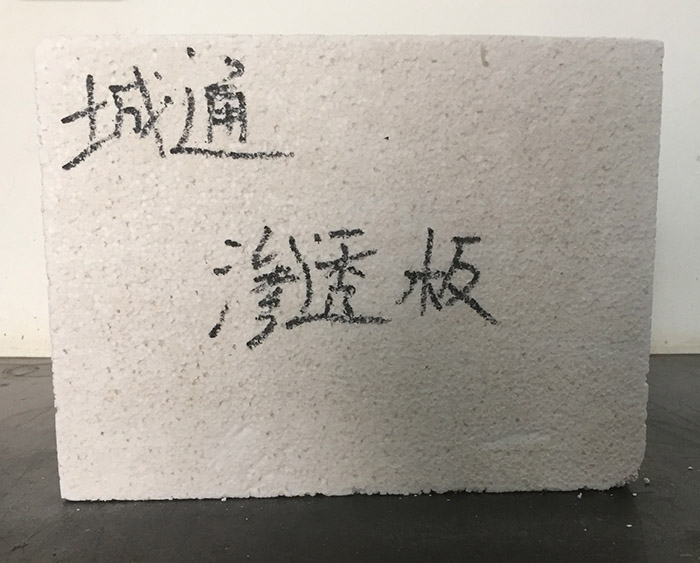 城通
渗透板